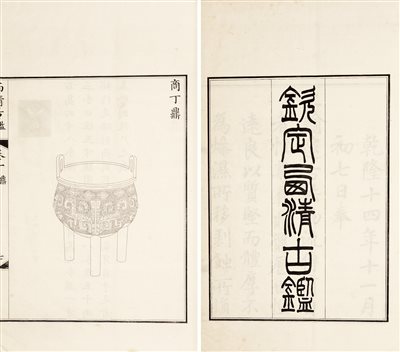 乾隆十四年十一月
初七日奉
欽定西清古鑑
商丁鼎
西清古鑑 卷一 鼎